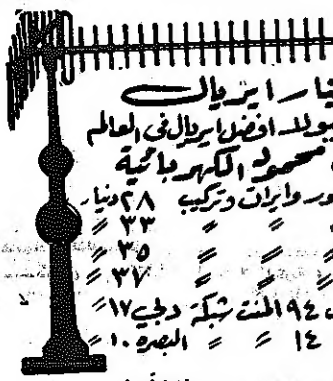 ايريال
افضل ايريال في العالم
محمود الكهربائية
وايرات وتركيب ٢٨ دينار
〃 〃 ٣٣ 〃
〃 〃 ٣٥ 〃
〃 〃 ٣٧ 〃
٩٤ المنت شبكة دبي ١٧ 〃
١٤ 〃 〃 البصره ١٠ 〃